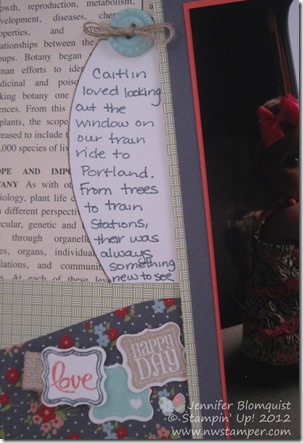 growth, reproduction, metabolism,
development, diseases, chem
operties, and
lationships between the
oups. Botany began
man efforts to iden
dicinal and poiso
king botany one
ences. From this
plants, the scope
reased to include t
,000 species of live
OPE AND IMPO
TANY As with ot
ogy, plant life c
m different perspecti
lecular, genetic and
through organelle
es, organs, individua
ulations, and communi
At each of these lev
Caitlin
loved looking
out the
window on
our train
ride to
Portland.
From trees
to train
Stations,
their was
always
something
new to see
love
HAPPY
DAY
Jennifer Blomquist
© Stampin' Up! 2012
www.nwstamper.com